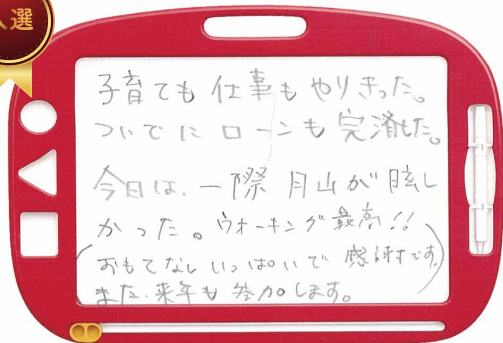 入選
子育ても仕事もやりきった。
ついでにローンも完済した。
今日は、一際月山が眩し
かった。ウオーキング最高!!
(おもてなしいっぱいで感謝です。)
また、来年も参加します。